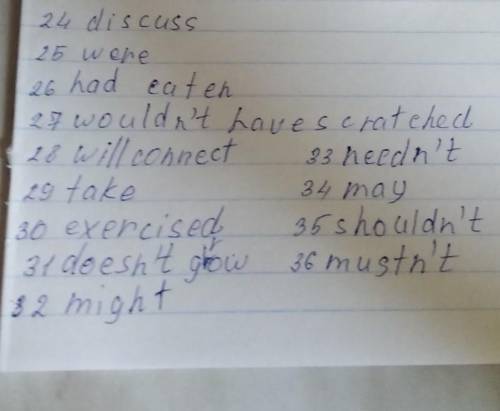 24 discuss
25 were
26 had eaten
27 wouldn't have scratched
28 will connect 33 needn't
29 take 34 may
30 exercised 35 shouldn't
31 doesn't grow 36 mustn't
32 might